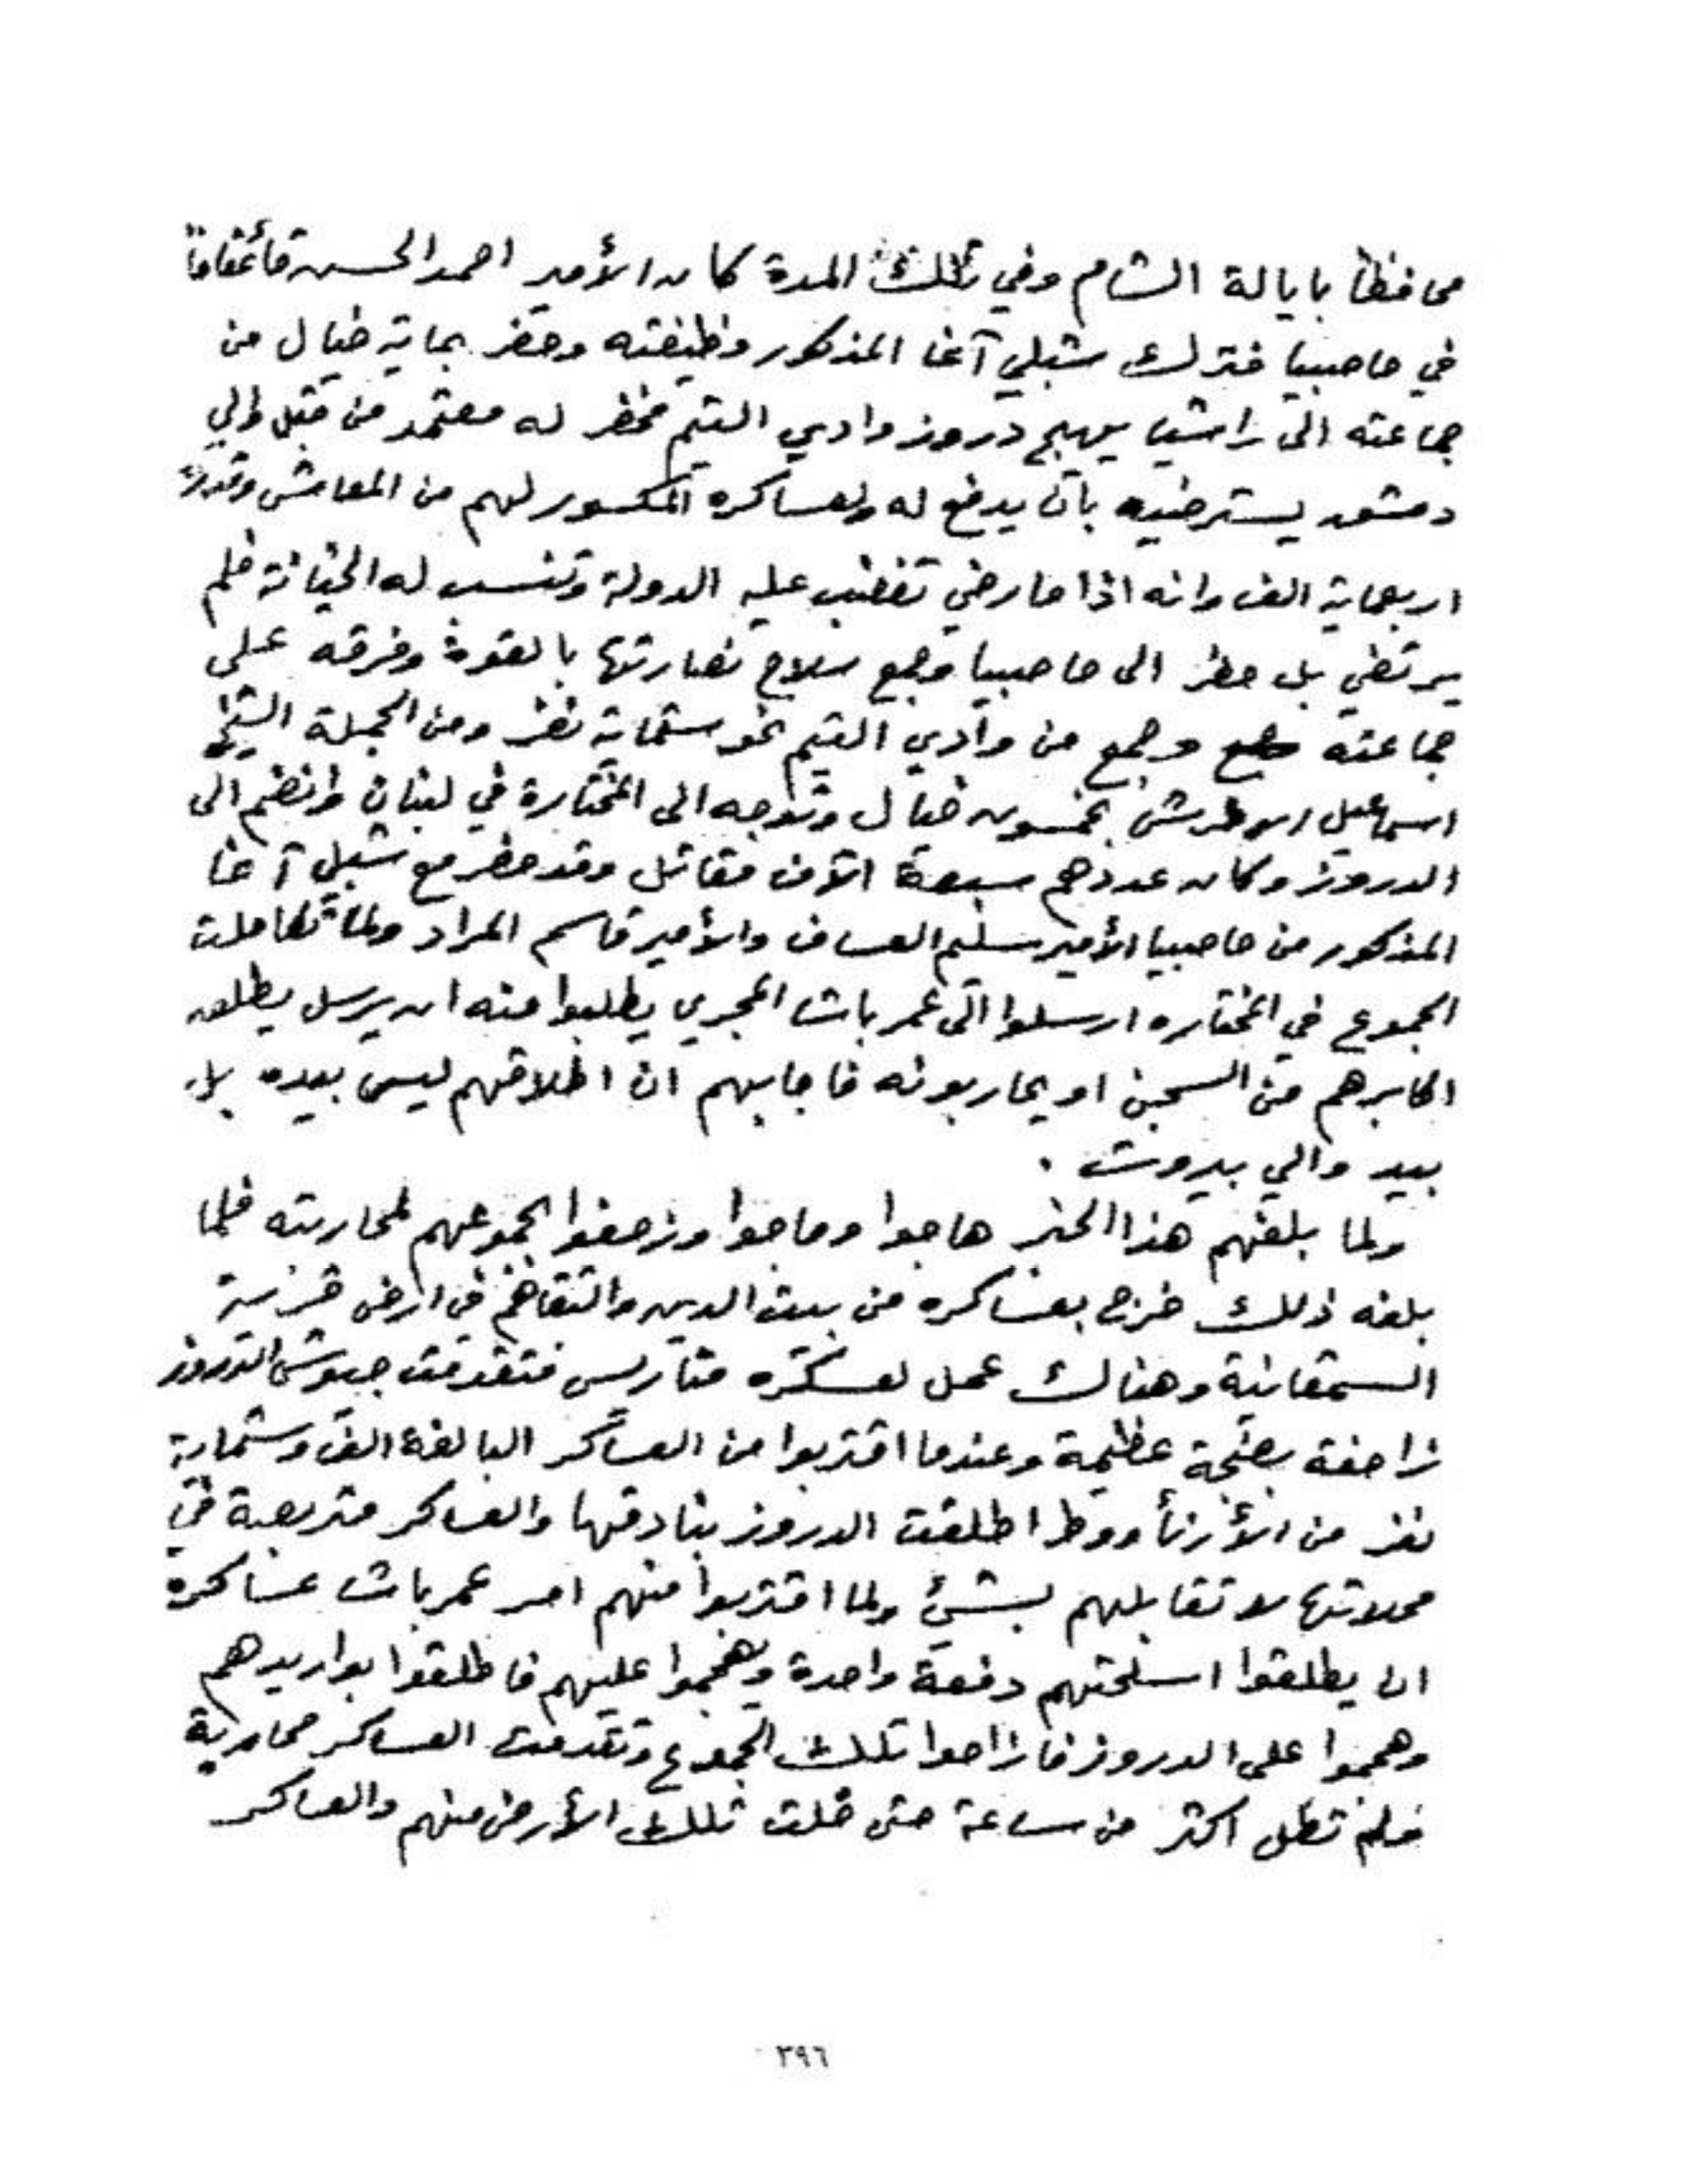 محافظاً بايالة الشام وفي تلك المدة كان الأمير احمد الحسن قائمقاماً
في حاصبيا فترك شبلي آغا المذكور وظيفته وحضر بماية خيال من
جماعته الى راشيا يهيج دروز وادي التيم فحضر له معتمد من قبل والي
دمشق يسترضيه بان يدفع له ولعساكره المكسور لهم من المعاش وقدره
اربعماية الف وانه اذا ما رضي تغضب عليه الدولة وتنسب له الخيانة فلم
يرتضي بل حظر الى حاصبيا وجمع سلاح نصارتها بالقوة وفرقه على
جماعته وجمع من وادي التيم نحو ستماية نفر ومن الجملة الشيخ
اسماعيل الاطرش بخمسون خيال وتوجه الى المختارة في لبنان وانضم الى
الدروز وكان عددهم سبعة الآف مقاتل وقد حضر مع شبلي آغا
المذكور من حاصبيا الأمير سليم العساف والأمير قاسم المراد ولما تكاملت
الجموع في المختاره ارسلوا الى عمر باشا المجري يطلبوا منه ان يرسل يطلق
اكابرهم من السجن او يحاربونه فاجابهم ان اطلاقهم ليس بيده بل
بيد والي بيروت .
ولما بلغهم هذا الخبر هاجوا وماجوا وزحفوا بجموعهم لمحاربته فلما
بلغه ذلك خرج بعساكره من بيت الدين والتقاهم في ارض قرية
السمقانية وهناك عمل لعسكره متاريس فتقدمت جيوش الدروز
زاحفة بضجة عظيمة وعندما اقتربوا من العساكر البالغة الف وستماية
نفر من الأرنأووط اطلقت الدروز بنادقها والعساكر متربصة في
محلاتها لا تقابلهم بشيئ ولما اقتربوا منهم امر عمر باشا عساكره
ان يطلقوا اسلحتهم دفعة واحدة ويهجموا عليهم فاطلقوا بواريدهم
وهجموا على الدروز فازاحوا تلك الجموع وتقدمت العساكر محاربة
فلم تطل اكثر من ساعة حتى خلت تلك الأرض منهم والعساكر
٣٩٦